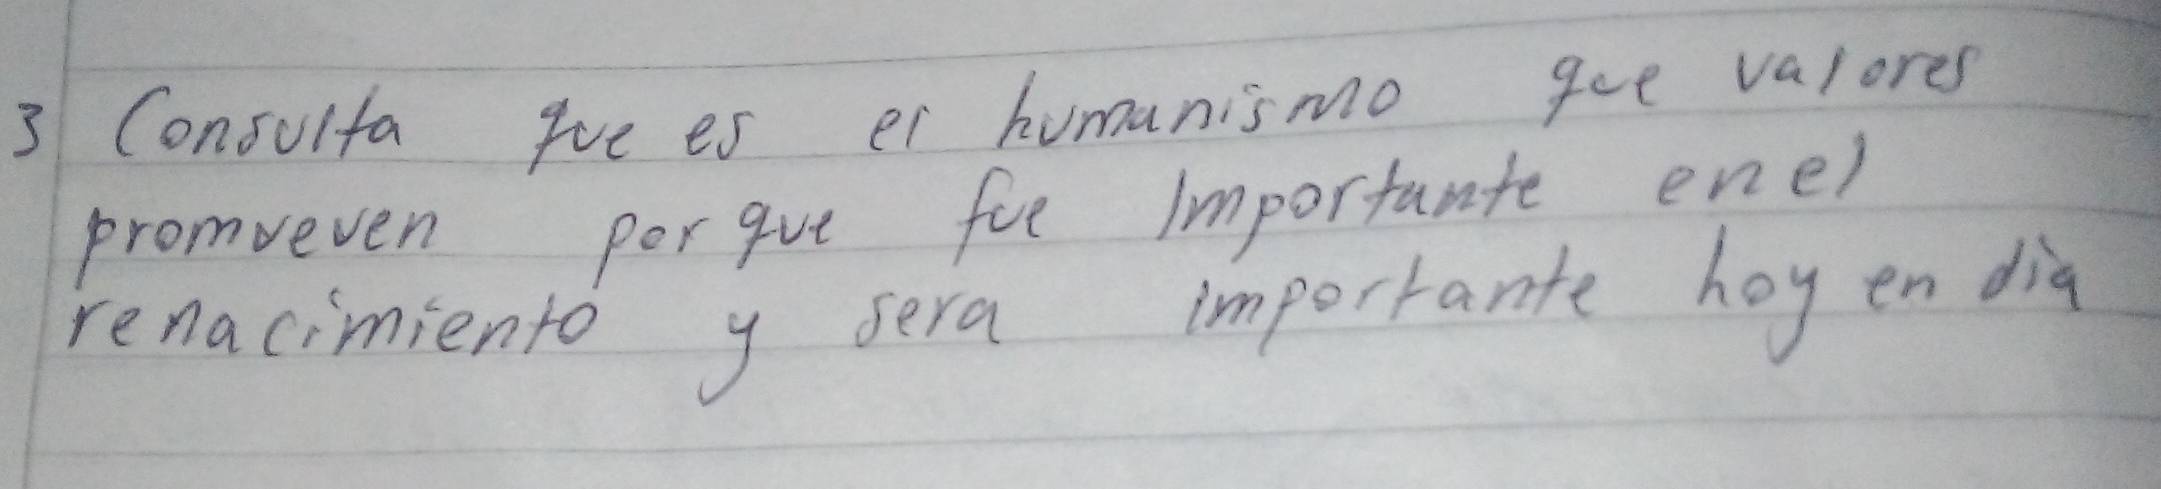 3 Consulta que es el humanismo que valores
promueven por que fue importante en el
renacimiento y sera importante hoy en día